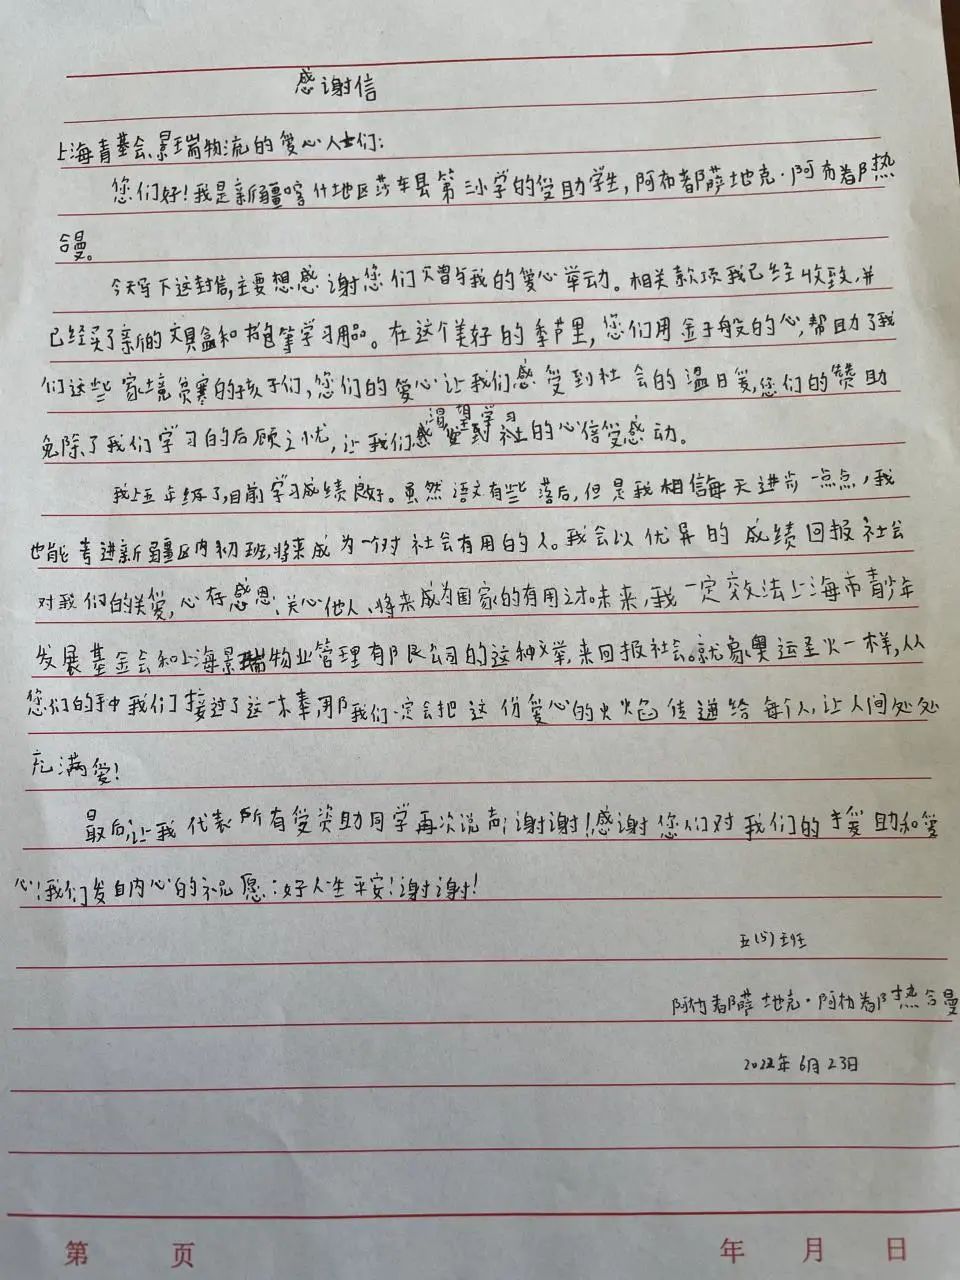 感谢信
上海青基会、景瑞物流的爱心人士们:
您们好!我是新疆喀什地区莎车县第三小学的受助学生,阿布都萨地克·阿布都热
合曼。
今天写下这封信,主要想感谢您们曾与我的爱心举动。相关款项我已经收致,并
已经买了新的文具盒和书包等学习用品。在这个美好的季芦里,您们用金子般的心,帮助了我
们这些家境贫寒的孩子们,您们的爱心让我们感受到社会的温暖,您们的赞助
免除了我们学习的后顾之忧,让我们渴望学习的心信受感动。
我上五年级了,目前学习成绩良好。虽然语文有些落后,但是我相信每天进步一点点,我
也能考进新疆区内初班,将来成为一个对社会有用的人。我会以优异的成绩回报社会
对我们的关爱,心存感恩、关心他人、将来成为国家的有用之才。未来,我一定效法上海市青少年
发展基金会和上海景瑞物业管理有限公司的这种义举,来回报社会。就象奥运圣火一样,从
您们的手中我们接过了这一棒,那我们一定会把这份爱心的火焰传递给每个人,让人间处处
充满爱!
最后,让我代表所有受资助同学再次说声:谢谢!感谢您们对我们的援助和爱
心!我们发自内心的祝愿:好人一生平安!谢谢!
五(5)班
阿布都萨地克·阿布都热合曼
2022年6月23日
第 页 年 月 日